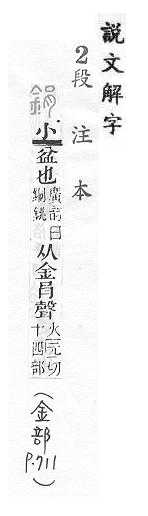 說文解字
2段注本
鋗
小盆也廣韵曰銅銚从金肙聲火玄切十四部
(金部
P.711)